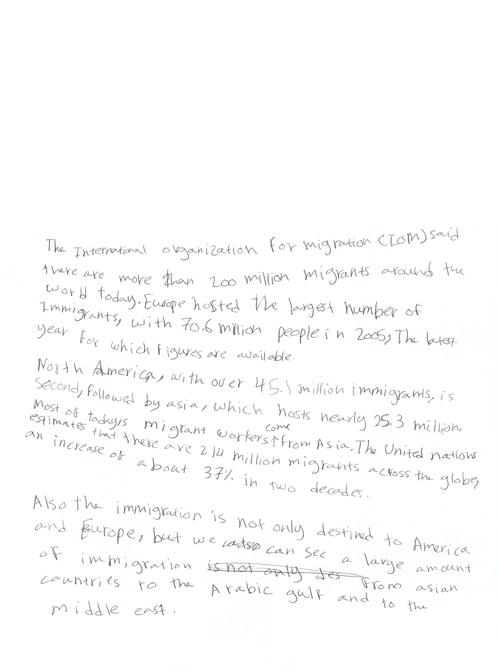 The International organization for migration (IOM) said
there are more than 200 million migrants around the
world today. Europe hosted the largest number of
Immigrants, with 70.6 million people in 2005, The latest
year for which figures are available.
North America, with over 45.1 million immigrants, is
Second, followed by asia, which hosts nearly 25.3 million.
Most of todays migrant workers come from Asia. The United nations
estimates that there are 214 million migrants across the globe,
an increase of about 37% in two decades.
Also the immigration is not only destined to America
and Europe, but we can see a large amount
of immigration is not only des from asian
countries to the Arabic gulf and to the
middle east.